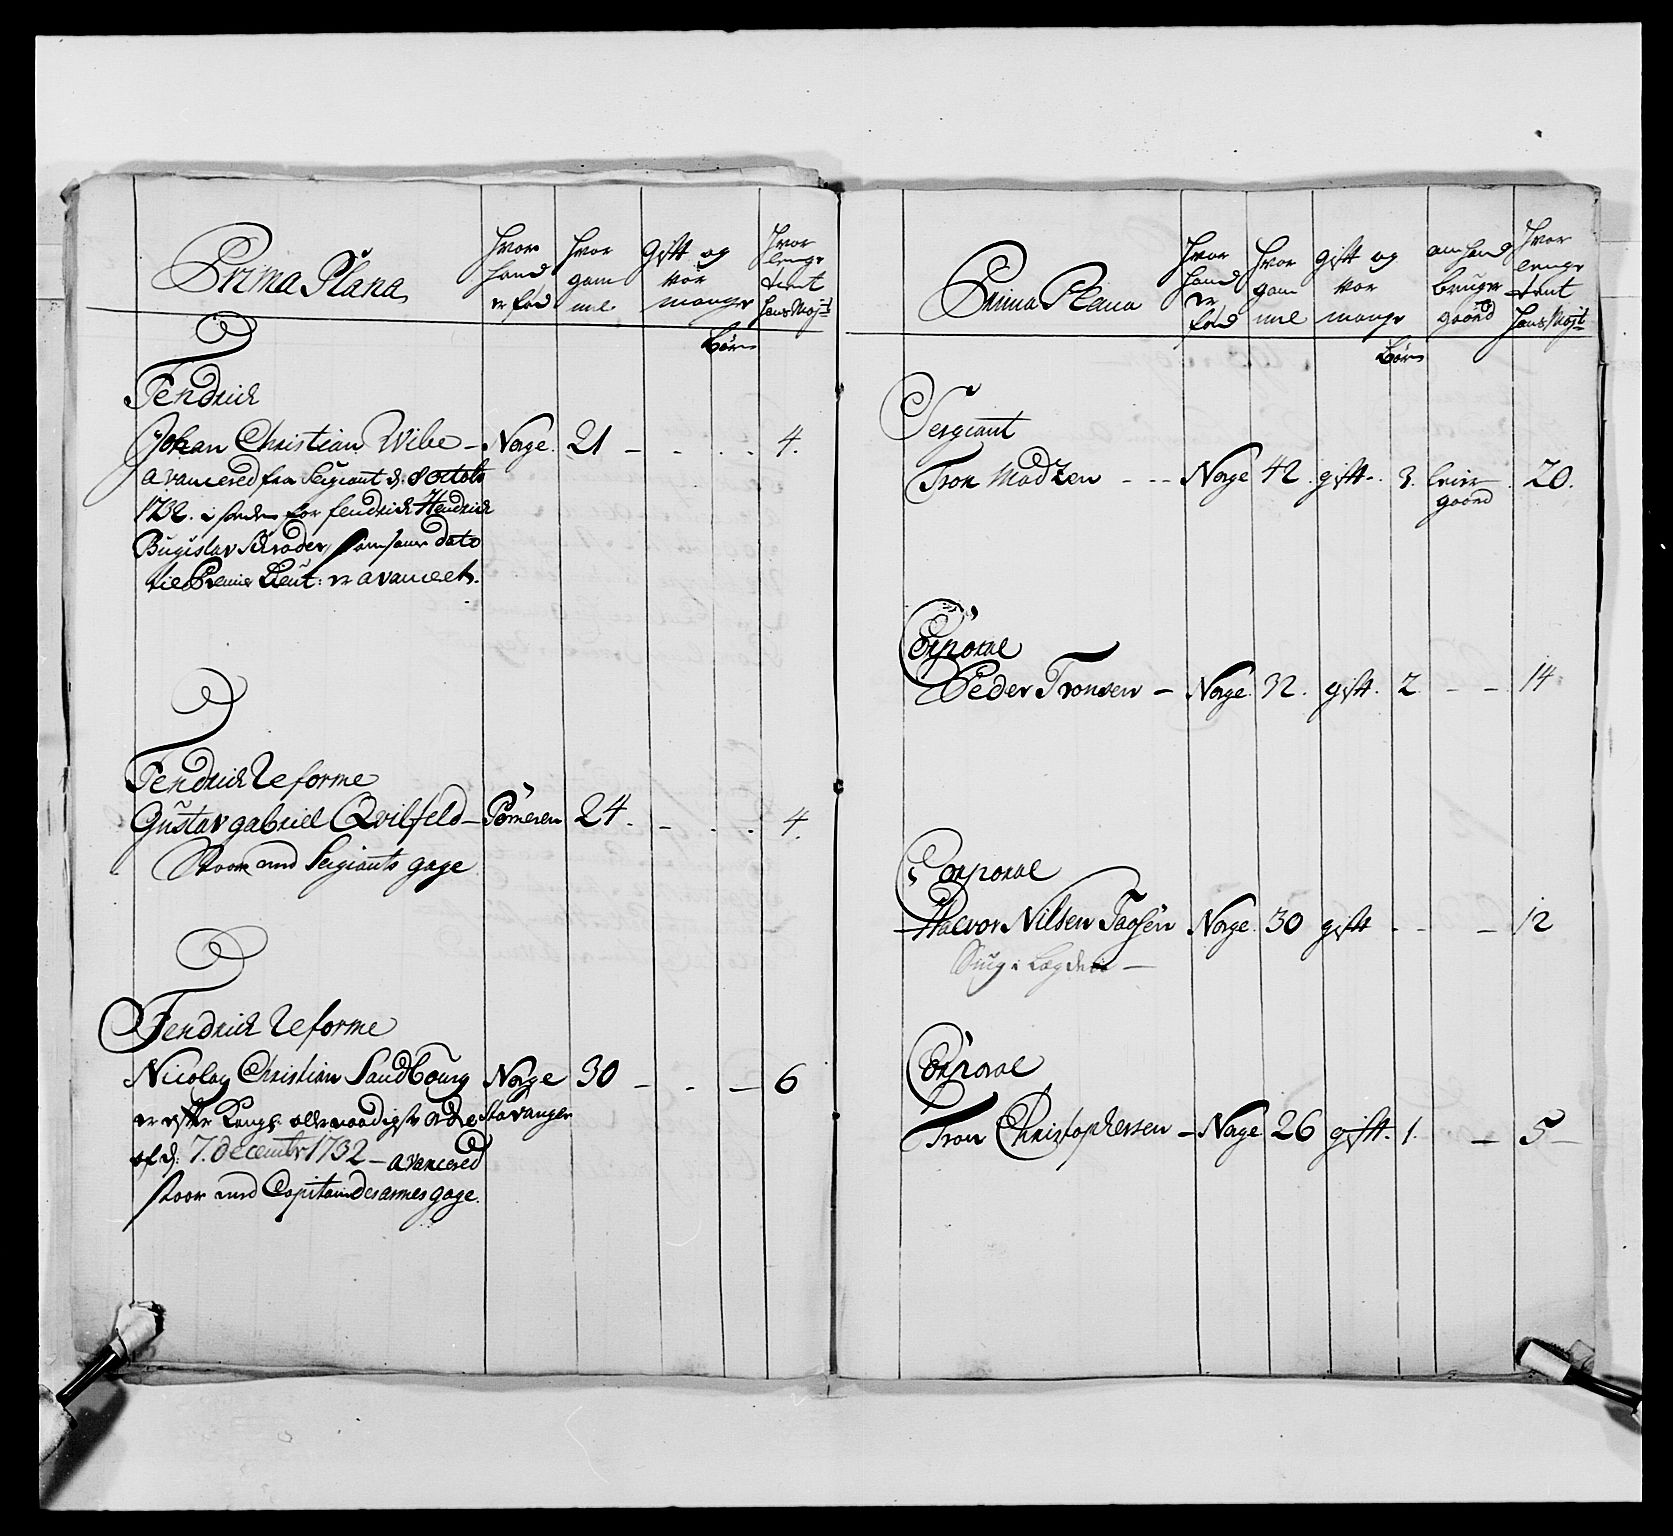 Prima Plana
Hvor
hand
er fød
Hvor
gam
mel
Gift og
vor
mange
Børn
Hvor
lenge
tient
hans Maj:t
Fendrich
Johan Christian Wibe – Norge. 21 – - . . 4.
avancered fra Sergiant d: 8 octob
1732. i steden for fendrich Hendrich
Bugislav Schrøder, som samme dato
til Premier Lieut: er avanceret.
Fendrich Reforme
Gustav gabriel Qvilfeld – Pomeren 24. – . . 4.
staar med Sergiants gage
Fendrich Reforme
Nicolay Christian Sandbourg Norge 30 – - – 6
er efter Kongl: allernaadigste ordre Stavanger
af d: 7. december 1732 – avancered
staar med Capitaindesarmes gage.
Prima Plana
Hvor
hand
er
fød
Hvor
gam
mel
gift og
vor
mange
Børn
om hand
bruger
gaard
Hvor
lenge
tient
hans Maj:t
Sergiant
Tron Madzen - - - Norge 42. gift. 3. leier
gaard 20.
Corporal
Peder Tronsen – Norge. 32. gift. 2 – – 14
Corporal
Halvor Nilsen Norge. 30 gift - - – 12
Corporal
Tron Christophersen – Norge 26 gift. 1. – 5 –